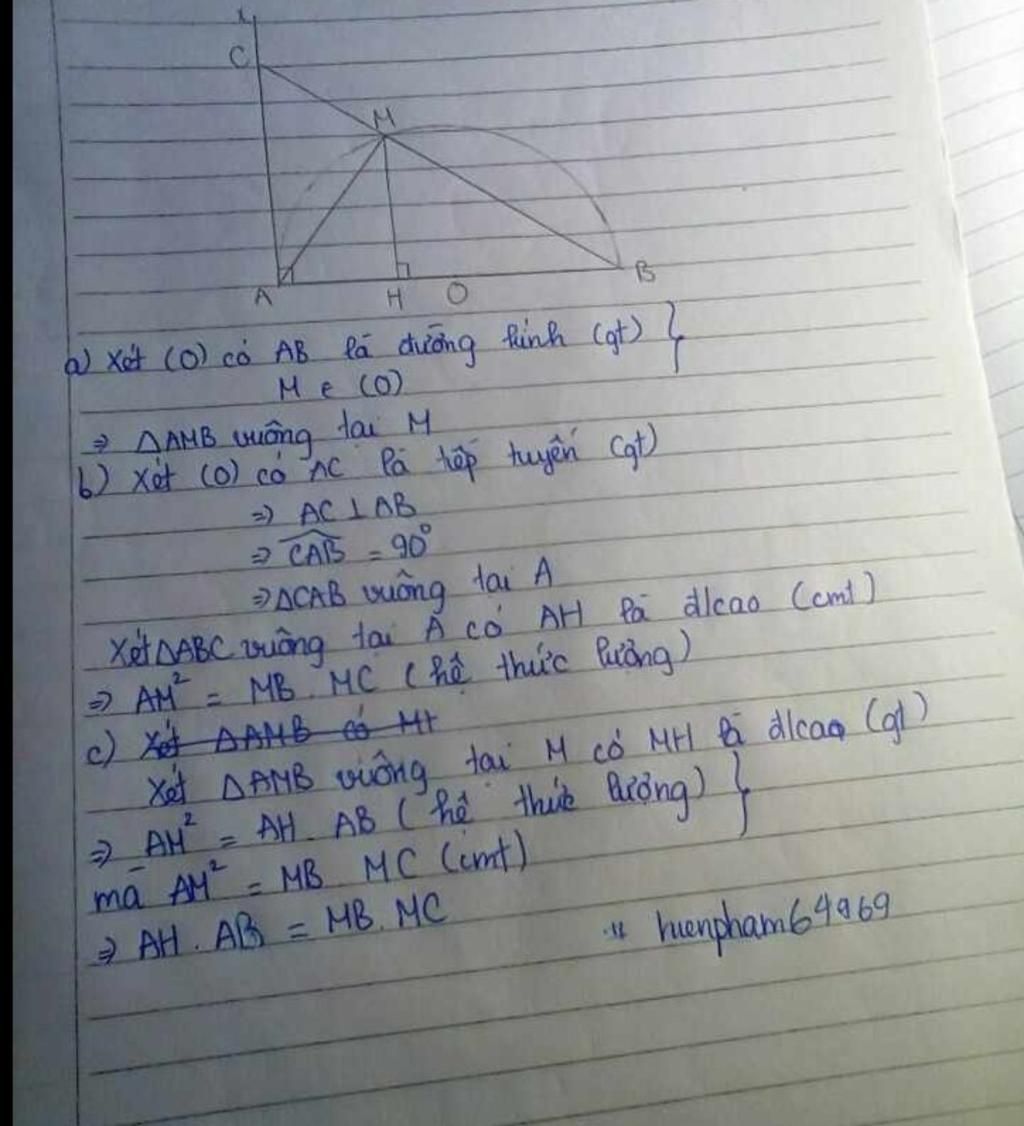 x
C
M
A H O B
a) Xét (O) có AB là đường kính (gt) }
M ∈ (O)
⇒ ΔAMB vuông tại M
b) Xét (O) có AC là tiếp tuyến (gt)
⇒ AC ⊥ AB
⇒ CAB = 90°
⇒ ΔCAB vuông tại A
Xét ΔABC vuông tại A có AH là đ/cao (cmt)
⇒ AM² = MB . MC (hệ thức lượng)
c) Xét ΔAMB có MH
Xét ΔAMB vuông tại M có MH là đ/cao (gt)
⇒ AM² = AH . AB (hệ thức lượng) }
mà AM² = MB MC (cmt)
⇒ AH . AB = MB . MC
hienpham64969